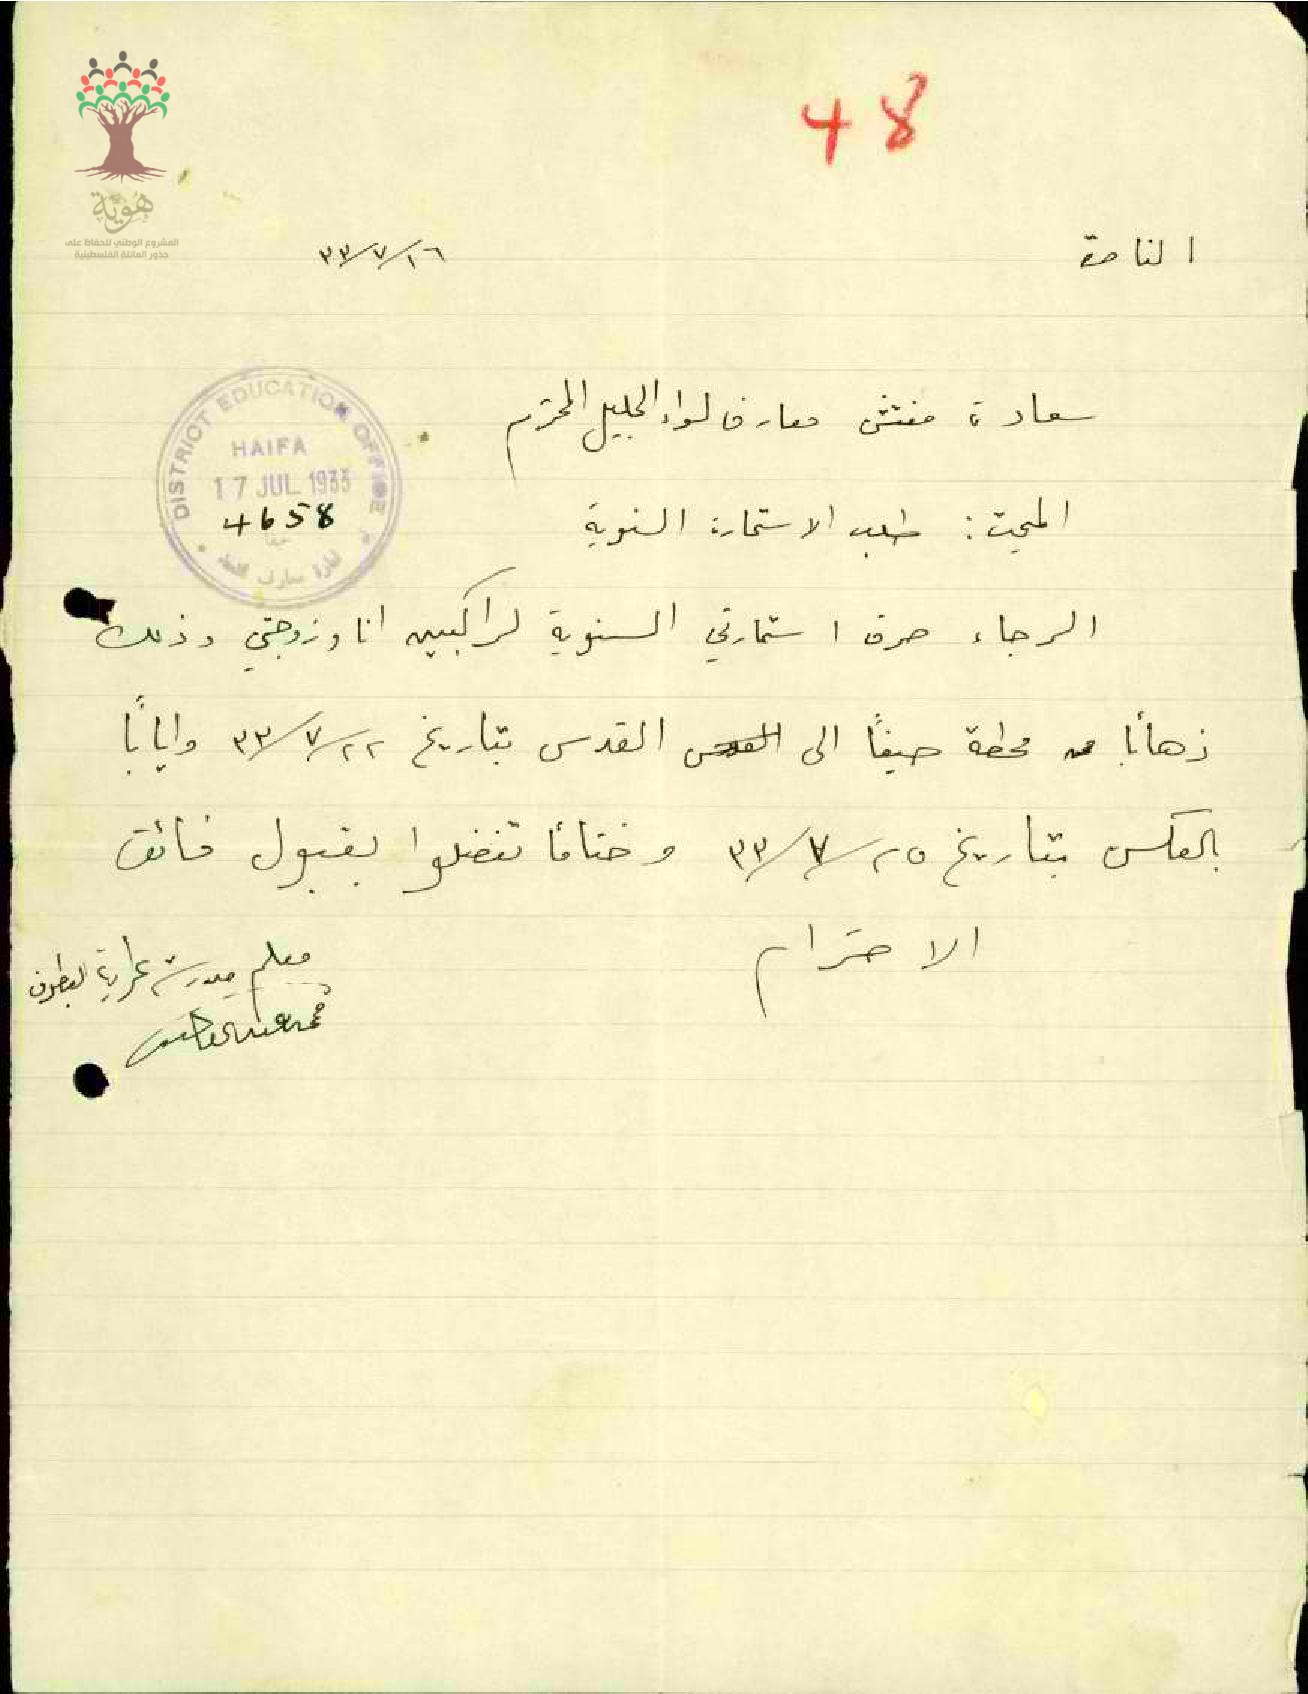 48
هُوِيَّة
المشروع الوطني للحفاظ على
جذور العائلة الفلسطينية
الناصرة
١٦/٧/٣٣
سعادة مفتش معارف لواء الجليل المحترم
DISTRICT EDUCATION OFFICE
HAIFA
17 JUL 1933
4658
حيفا
ادارة معارف اللواء
المبحث: طلب الاستمارة السنوية
الرجاء صرف استمارتي السنوية لراكبين انا وزوجتي وذلك
ذهابًا من محطة حيفا الى القدس بتاريخ ٢٢/٧/٣٣ وايابًا
بالعكس بتاريخ ٢٥/٧/٣٣ وختامًا تفضلوا بقبول فائق
الاحترام
معلم مدرسة عرابة البطوف
محمد